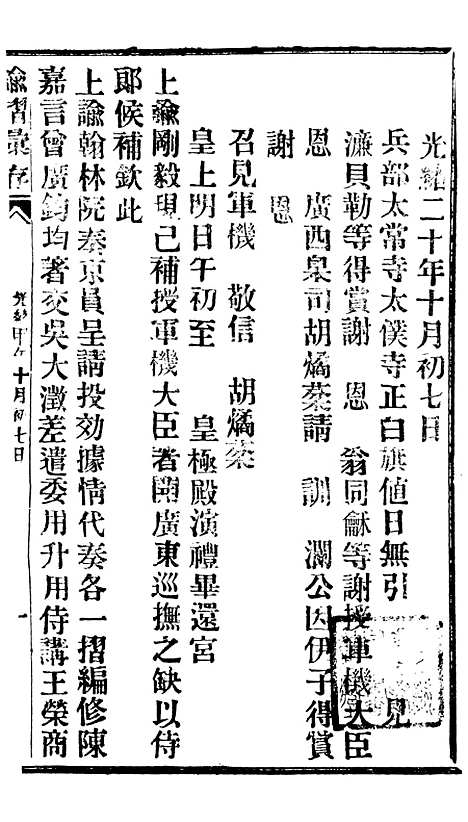 光緒二十年十月初七日
兵部太常寺太僕寺正白旗值日無引　見
濂貝勒等得賞謝　恩　翁同龢等謝授軍機大臣
恩　廣西臬司胡燏棻請　訓　瀾公因伊子得賞
謝　恩
召見軍機　敬信　胡燏棻
皇上明日午初至　皇極殿演禮畢還宮
上諭剛毅現已補授軍機大臣著開廣東巡撫之缺以侍
郎候補欽此
上諭翰林院奏京員呈請投効據情代奏各一摺編修陳
嘉言曾廣鈞均著交吳大澂差遣委用升用侍講王榮商
諭摺彙存
光緒甲午十月初七日
一